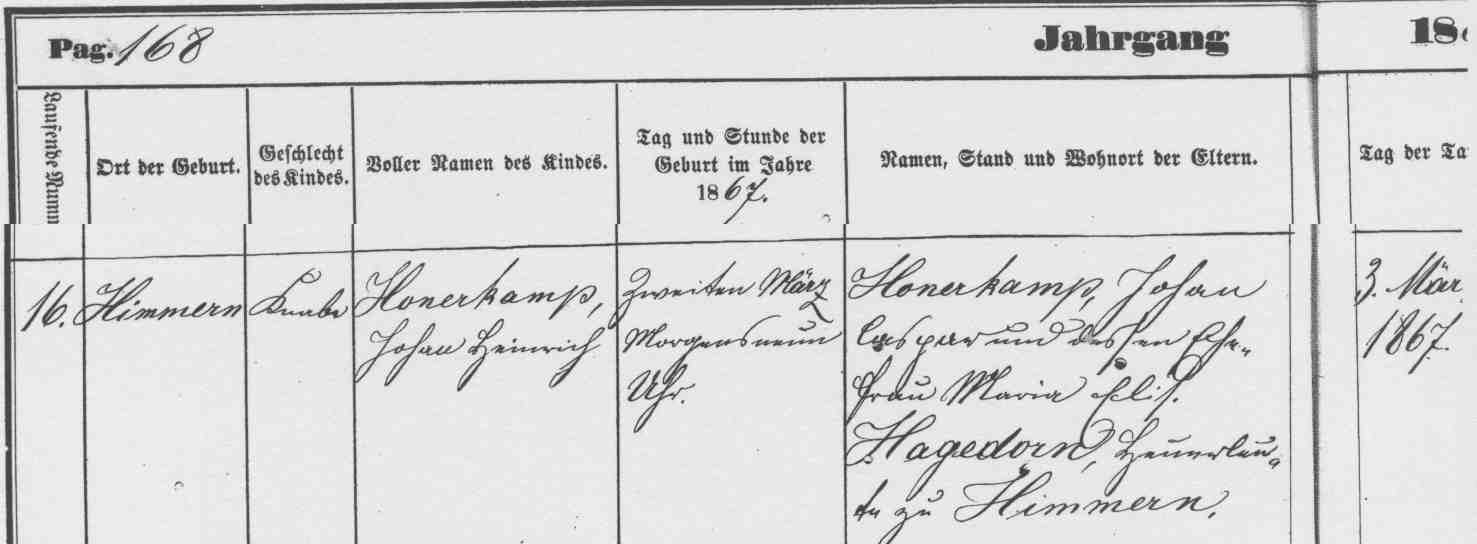 Pag. 168
Jahrgang
18
Laufende Num
Ort der Geburt.
Geschlecht
des Kindes.
Voller Namen des Kindes.
Tag und Stunde der
Geburt im Jahre
1867.
Namen, Stand und Wohnort der Eltern.
Tag der Ta
16.
Himmern
Knabe
Honerkamp,
Johan Heinrich
Zweiten März
Morgens neun
Uhr.
Honerkamp, Johan
Caspar und dessen Ehe-
frau Maria Elis.
Hagedorn, Heuerleu-
te zu Himmern.
3. Mär
1867.